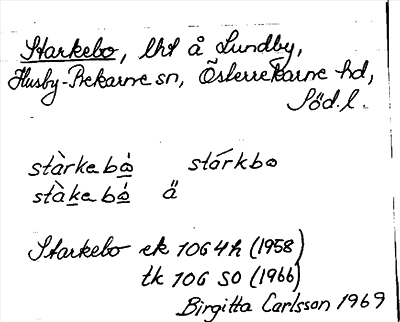 Starkebo, lht å Lundby,
Husby-Rekarne sn, Österrekarne hd,
Söd. l.
stàrkebȯ stórkbo
stàkebȯ ä
Starkebo ek 10G 4h (1958)
tk 10G SO (1966)
Birgitta Carlsson 1969